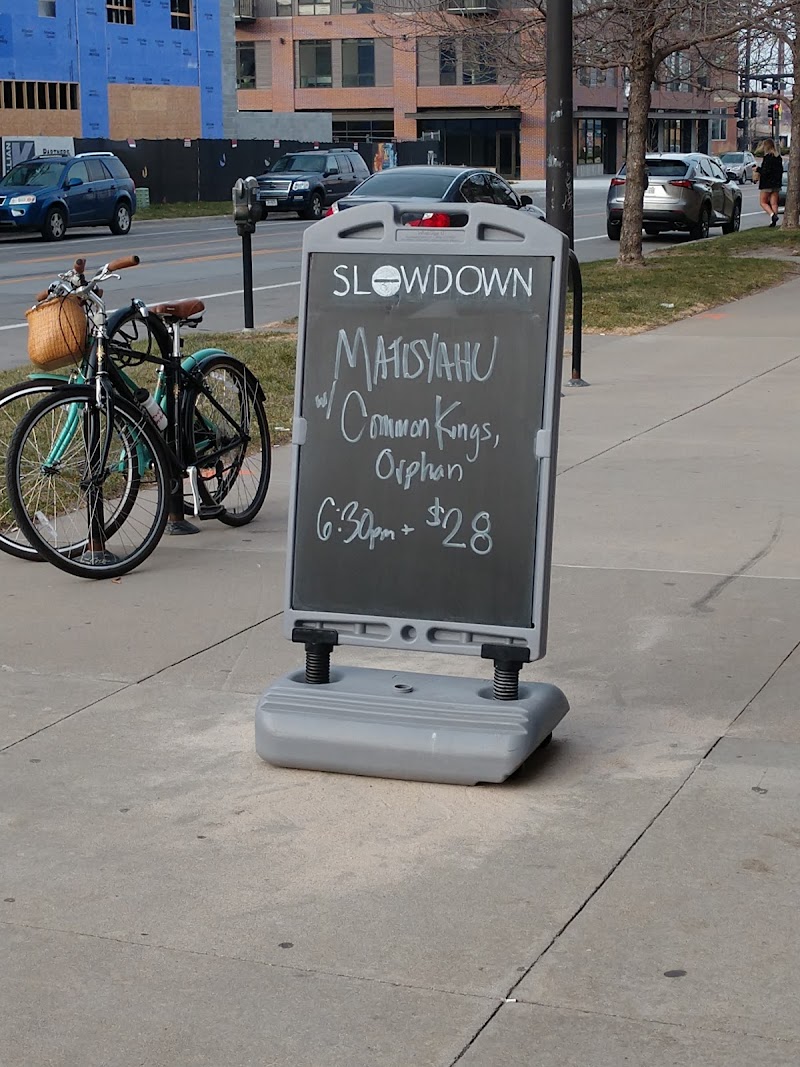 SLOWDOWN
MATISYAHU
w/ Common Kings,
Orphan
6:30pm + $28